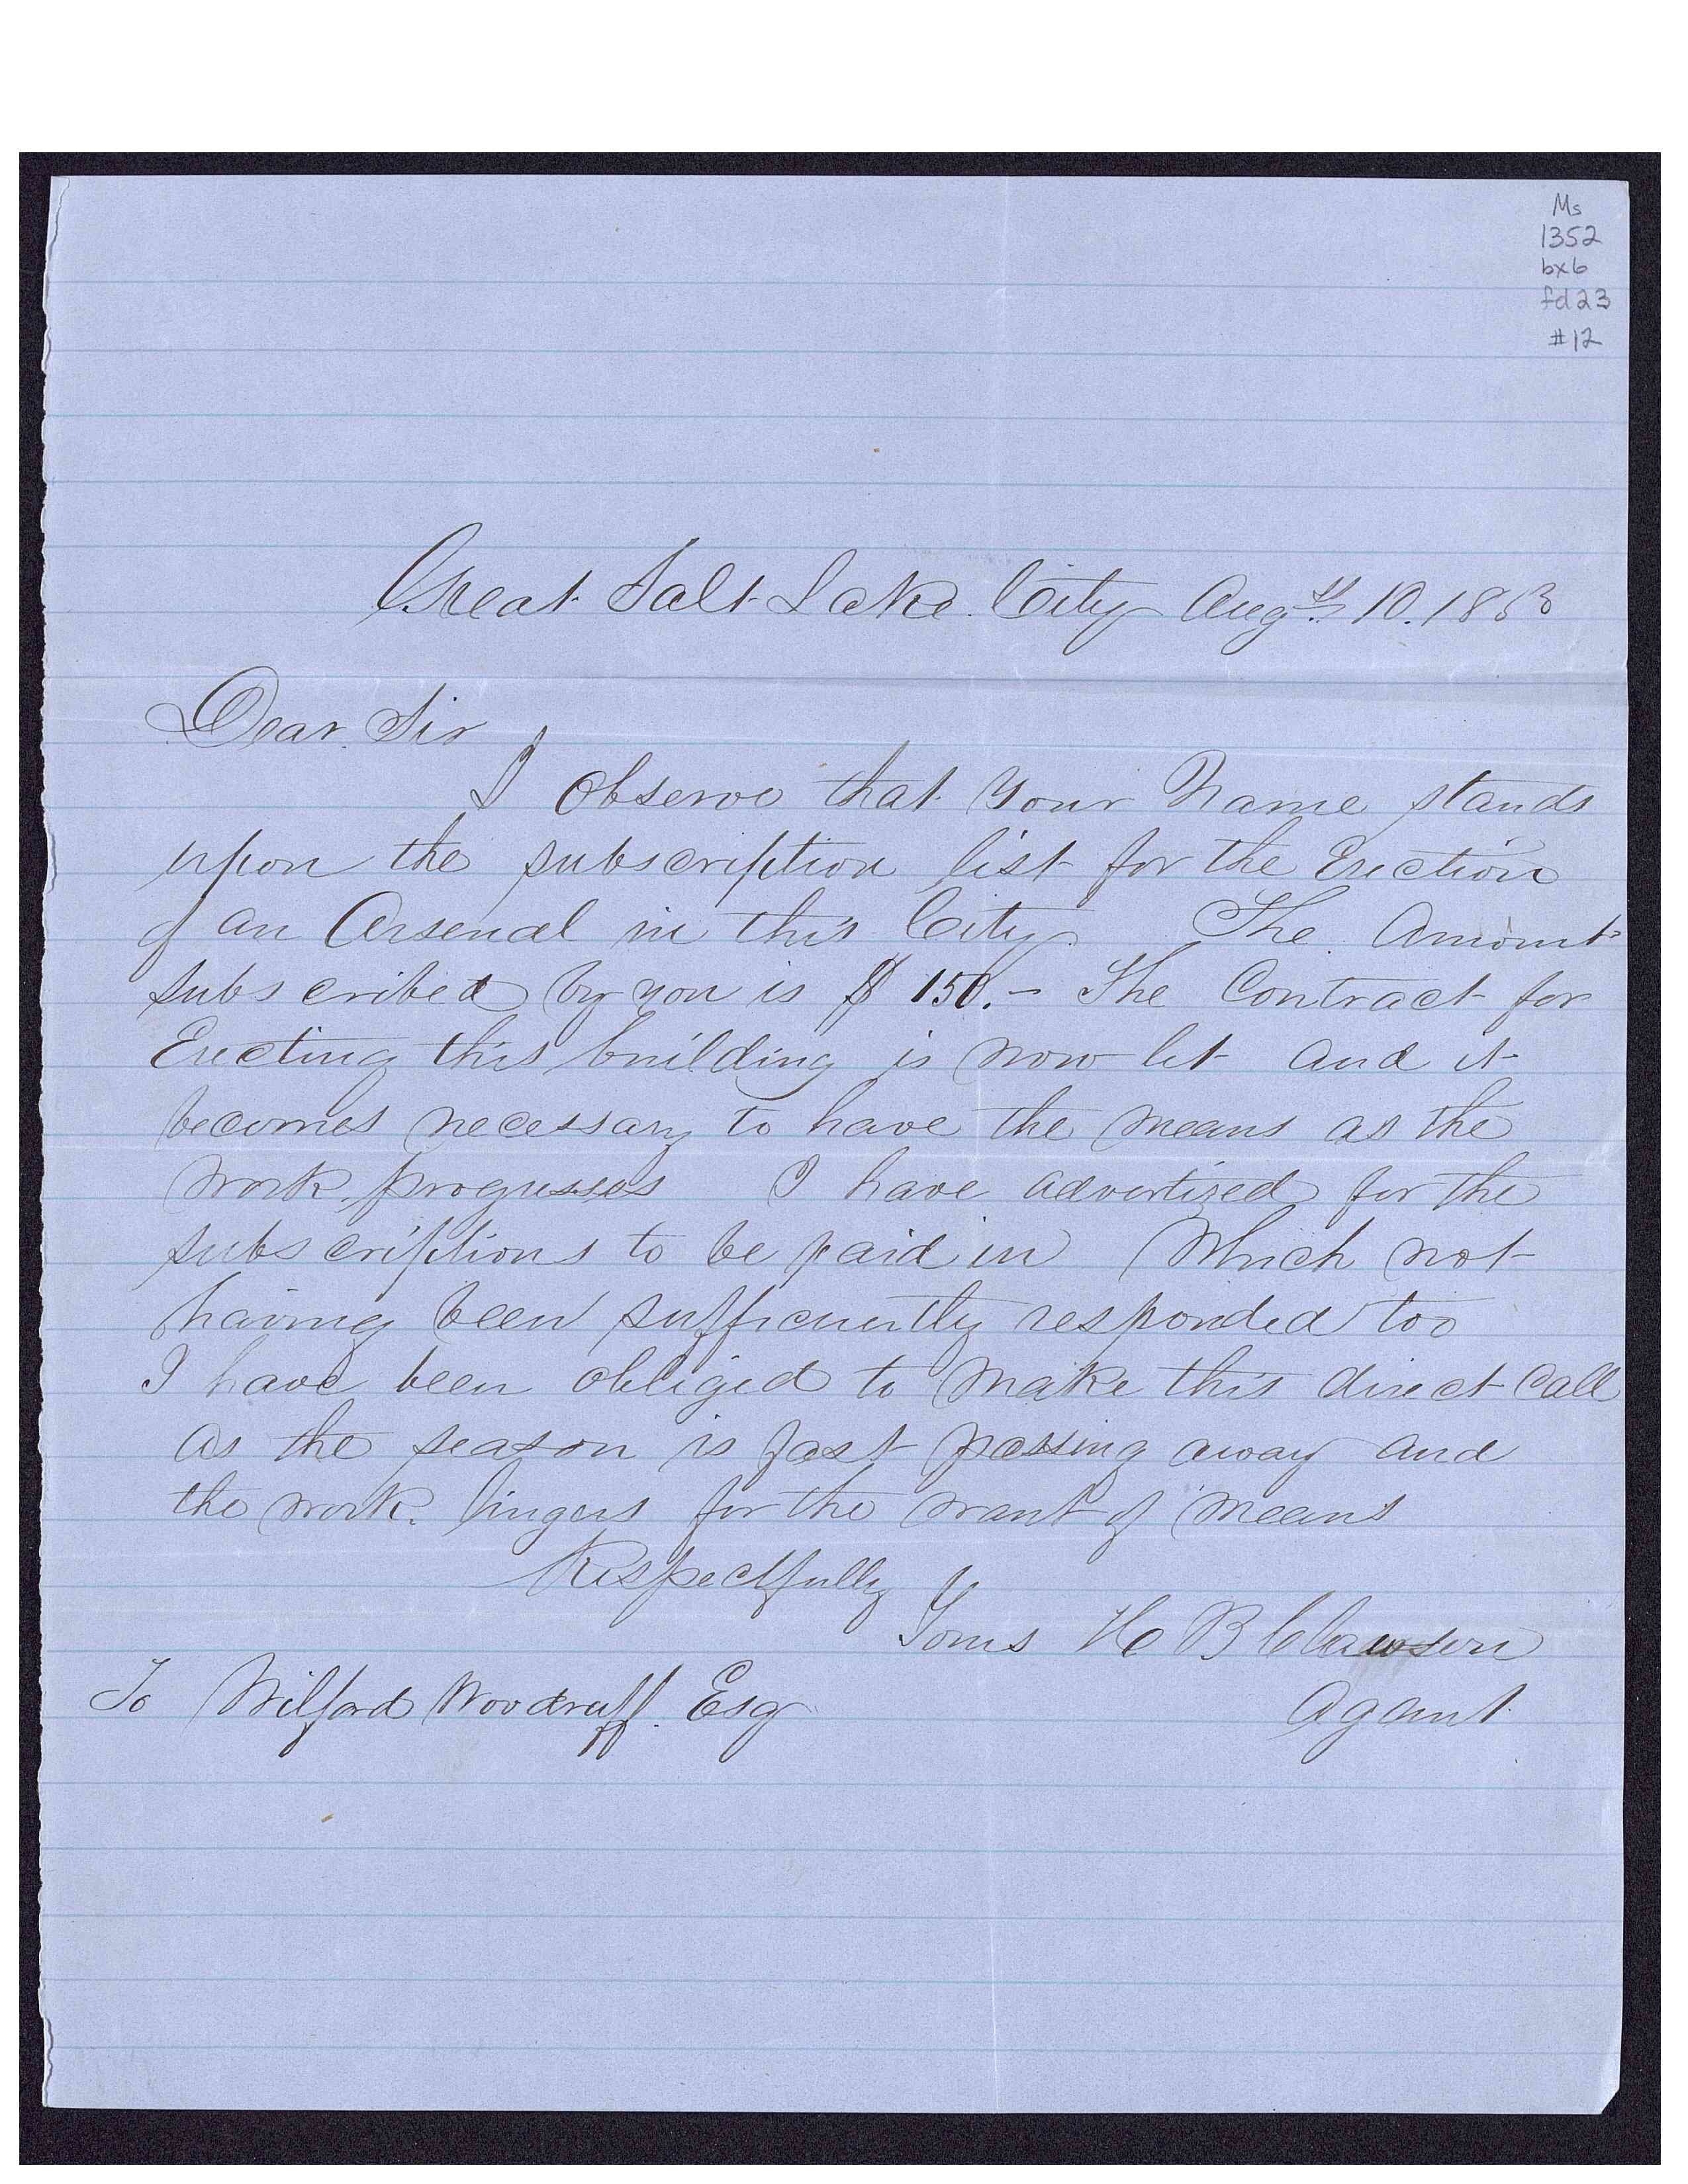 Ms
1352
bx6
fd23
#12
Great Salt Lake City Augst 10. 1863
Dear Sir
I observe that your Name stands
upon the subscription list for the Erection
of an Arsenal in this City. The Amount
subscribed by you is $150.- The Contract for
Erecting this building is now let and it
becomes necessary to have the means as the
work progresses I have advertized for the
subscriptions to be paid in Which not
having been sufficiently responded too
I have been obliged to make this direct Call
as the season is fast passing away and
the work lingers for the want of means
Respectfully
Yours H B Clawson
To Wilford Woodruff. Esq
Agent